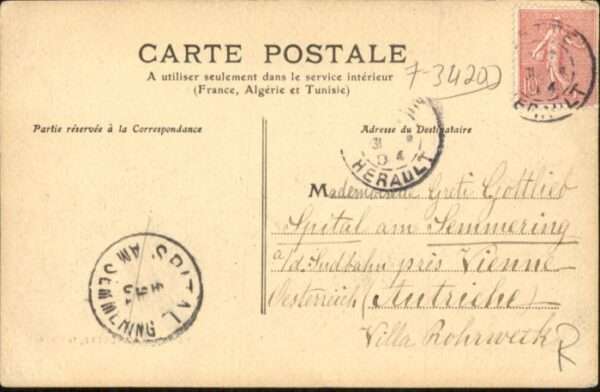 CARTE POSTALE
A utiliser seulement dans le service intérieur
(France, Algérie et Tunisie)
7-3420
Partie réservée à la Correspondance
Adresse du Destinataire
HERAULT
10
HERAULT
Mademoiselle Greti Gottlieb
Spital am Semmering
a/d. Südbahn près Vienne
Oesterreich (Autriche)
Villa Rohrweck
R
SPITAL
AM SEMMERING